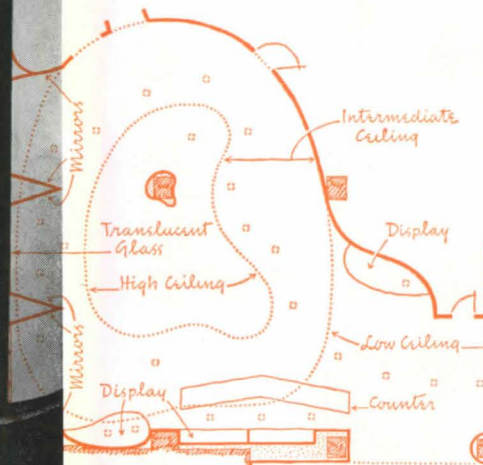 Mirrors
Mirrors
Intermediate
Ceiling
Translucent
Glass
Display
High Ceiling
Low Ceiling
Mirrors
Display
Counter